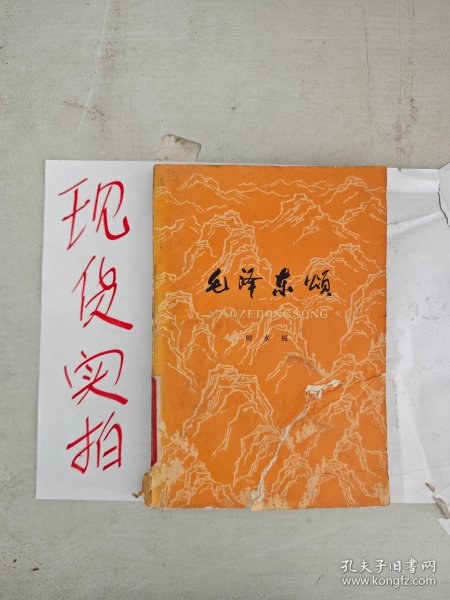 现货实拍
毛泽东颂
MAOZEDONGSONG
时永福
孔夫子旧书网
www.kongfz.com